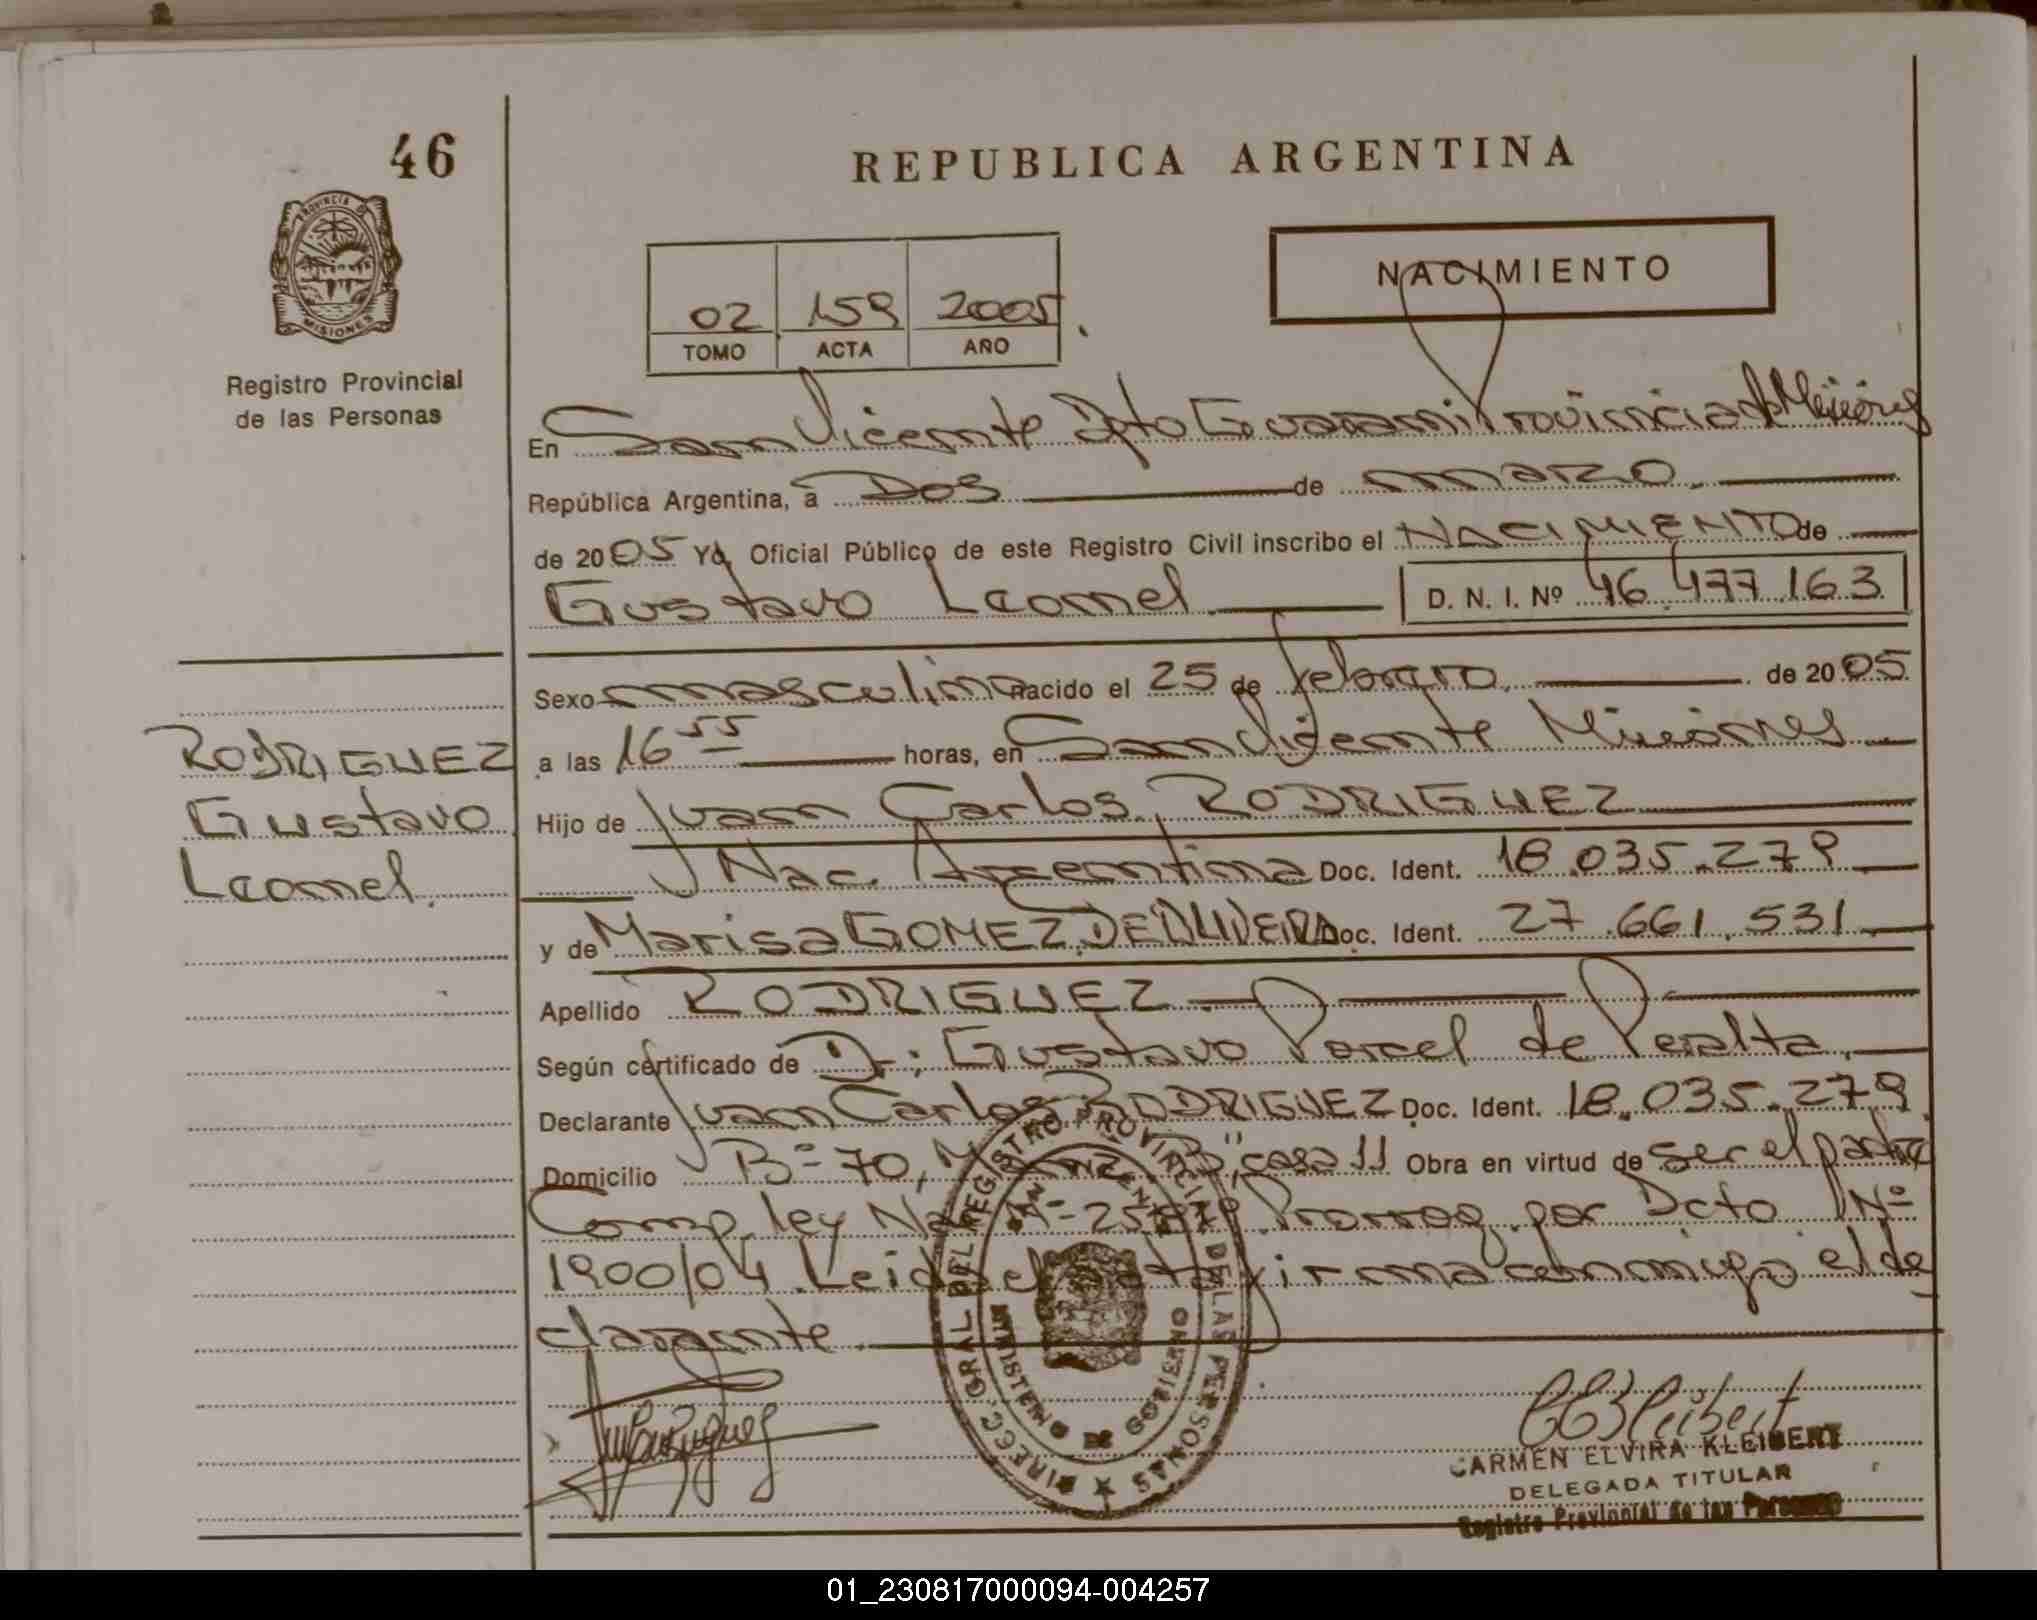 46
REPUBLICA ARGENTINA
PROVINCIA DE
MISIONES
Registro Provincial
de las Personas
NACIMIENTO
02 159 2005
TOMO ACTA AÑO
En San Vicente Dpto Guarani Provincia de Misiones
República Argentina, a Dos de marzo
de 2005 Yo, Oficial Público de este Registro Civil inscribo el NACIMIENTO de
Gustavo Leonel D. N. I. Nº 46.477.163
Sexo masculino nacido el 25 de febrero de 2005
a las 16 55 horas, en San Vicente Misiones
RODRIGUEZ
Gustavo
Leonel.
Hijo de Juan Carlos RODRIGUEZ
Nac. Argentina Doc. Ident. 18.035.279
y de Marisa GOMEZ DE OLIVERA Doc. Ident. 27.661.531
Apellido RODRIGUEZ
Según certificado de Dr: Gustavo Porcel de Peralta
Declarante Juan Carlos RODRIGUEZ Doc. Ident. 18.035.279
Domicilio Bº 70, "B", casa 11 Obra en virtud de ser el padre
Comp. ley Nº Prorrog. por Dcto Nº
1900/04. Leida el acta firma conmigo el de
clarante.
DIRECC. GRAL. DEL REGISTRO PROVINCIAL DE LAS PERSONAS
SAN VICENTE
MINISTERIO DE GOBIERNO
CARMEN ELVIRA KLEIBERT
DELEGADA TITULAR
Registro Provincial de las Personas
01_230817000094-004257